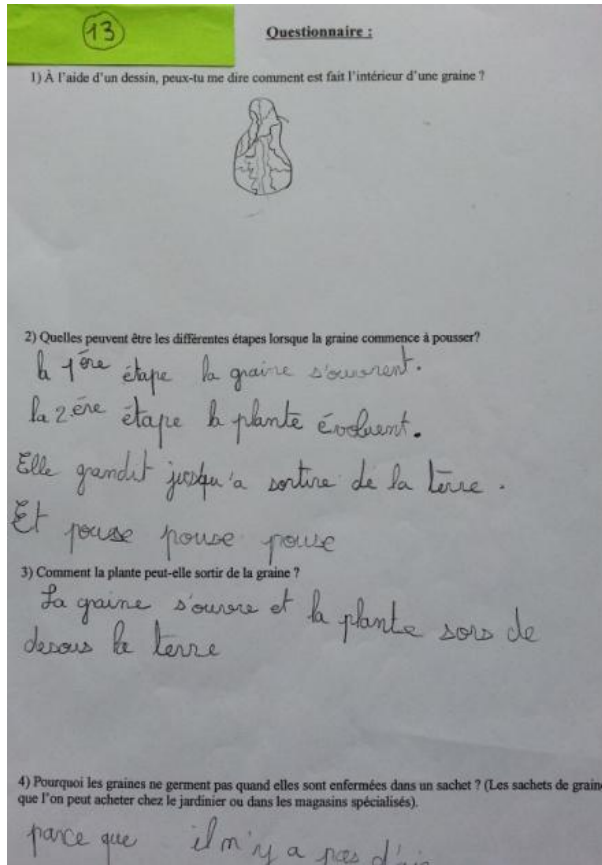 13
Questionnaire :
1) À l'aide d'un dessin, peux-tu me dire comment est fait l'intérieur d'une graine ?
2) Quelles peuvent être les différentes étapes lorsque la graine commence à pousser?
la 1ère étape la graine s'ouvrent.
la 2.ére étape la plante évoluent.
Elle grandit jusqu'a sortire de la terre.
Et pouse pouse pouse
3) Comment la plante peut-elle sortir de la graine ?
La graine s'ouvre et la plante sors de
desous la terre
4) Pourquoi les graines ne germent pas quand elles sont enfermées dans un sachet ? (Les sachets de grain
que l'on peut acheter chez le jardinier ou dans les magasins spécialisés).
parce que il n'y a pas